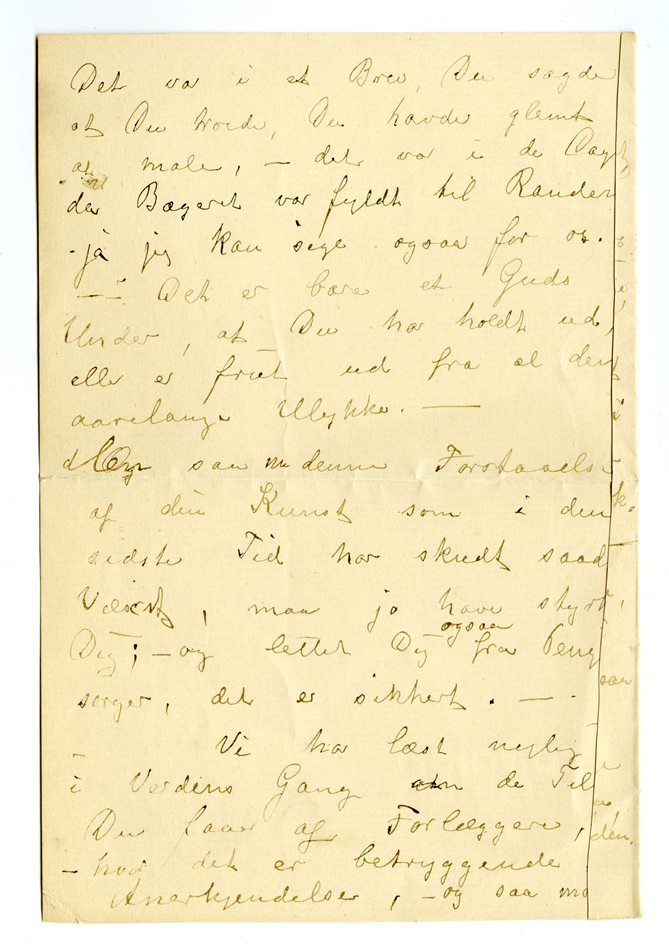 Det var i et Brev, Du sagde
at Du troede, Du havde glemt
at male, – det var i de Dage,
da Bægeret var fyldt til Randen
– ja jeg kan sige ogsaa for os.
— Det er bare et Guds
Under, at Du har holdt ud,
eller er friet ud fra al den
aarelange Ulykke. —
Og saa nu denne Forstaaelse
af din Kunst som i den
sidste Tid har skudt saad
Vækst, maa jo have styrk
Dig; – og lettet Dig ogsaa fra Peng
sorger, det er sikkert. —
– Vi har læst nylig
i Verdens Gang om de Til
Du faar af Forlæggere,
– hvor det er betryggende
Anerkjendelser, – og saa ma
k.
saa
den.